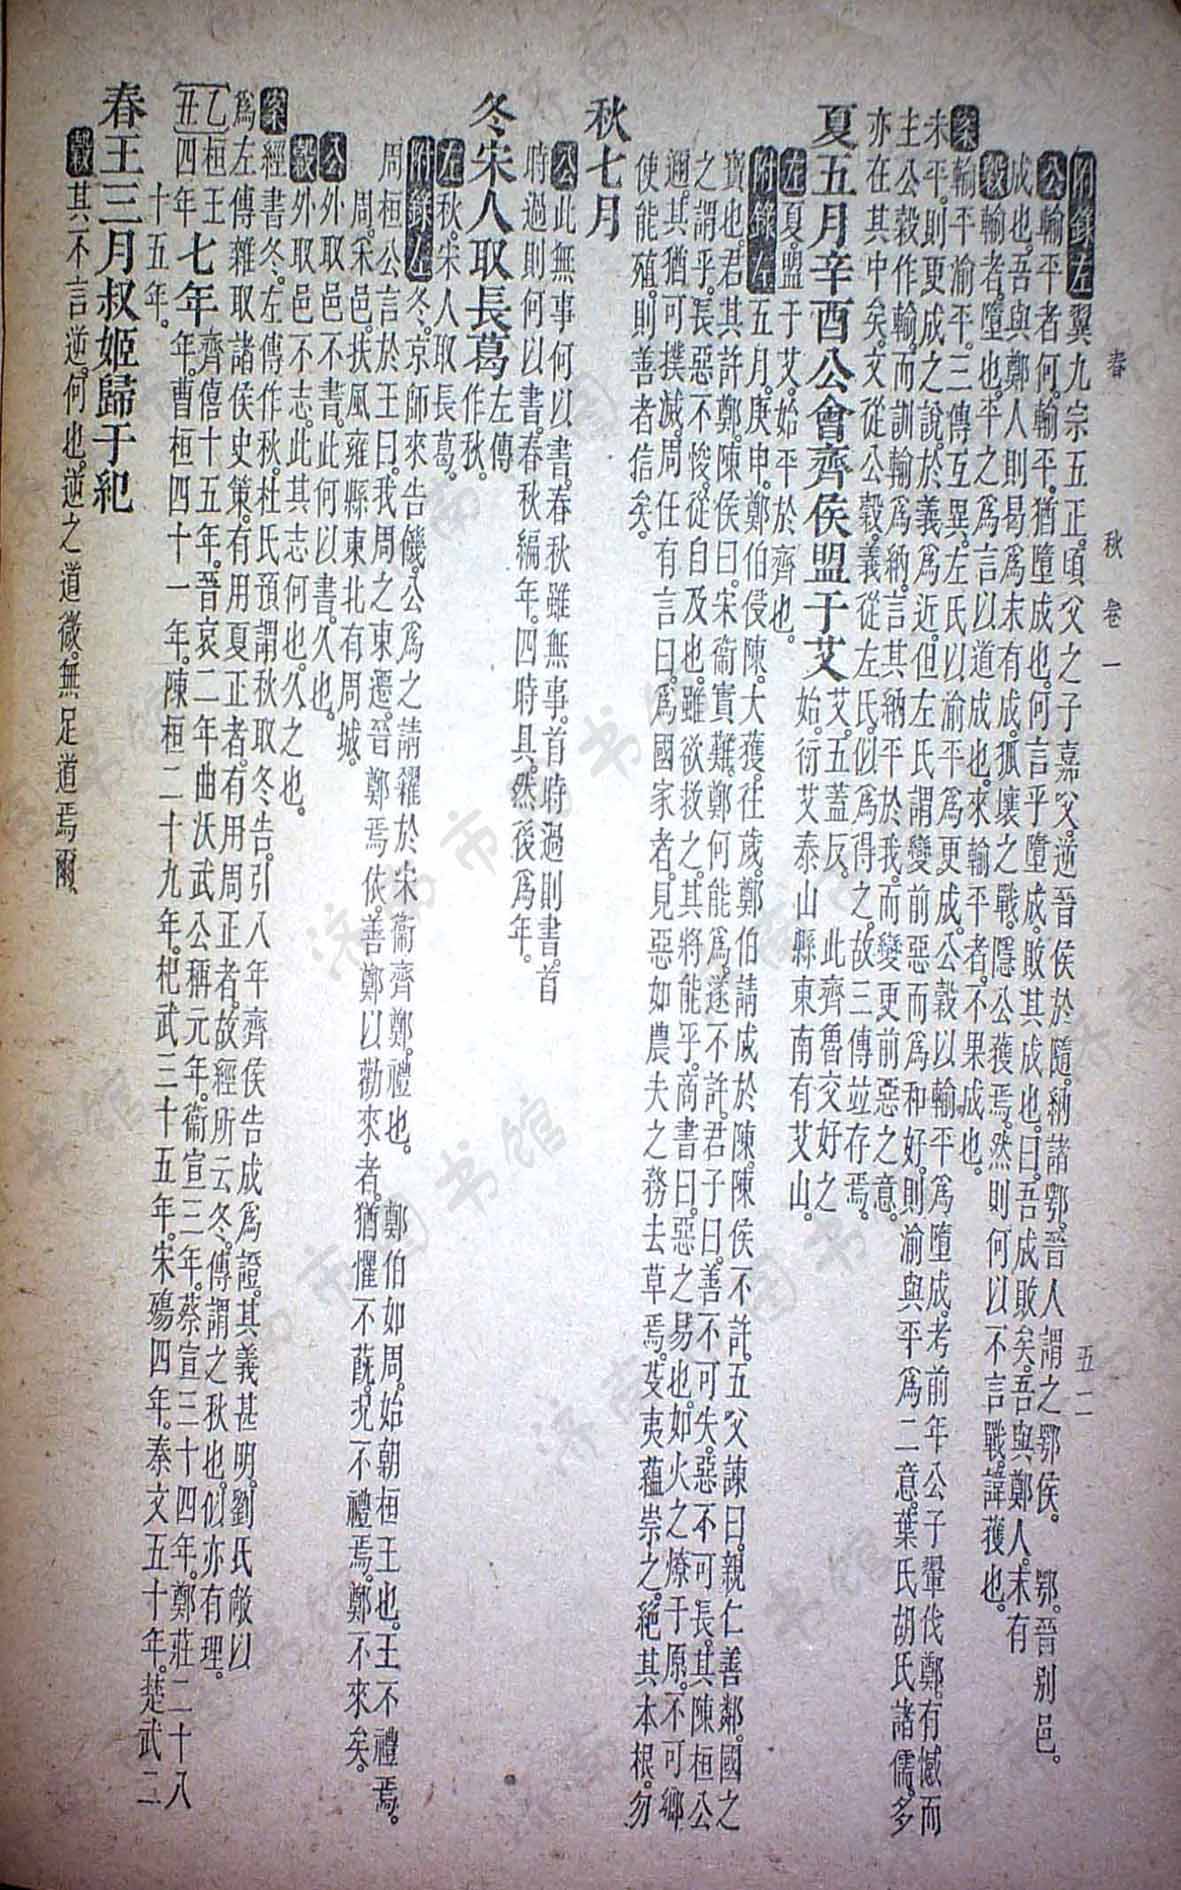 春 秋 卷一 五二
附錄左翼九宗五正。頃父之子嘉父。逆晉侯於隨。納諸鄂。晉人謂之鄂侯。 鄂。晉別邑。
公輸平者何。輸平。猶墮成也。何言乎墮成。敗其成也。曰。吾成敗矣。吾與鄭人。末有
成也。吾與鄭人則曷爲末有成。狐壤之戰。隱公獲焉。然則何以不言戰。諱獲也。
穀輸者。墮也。平之爲言以道成也。來輸平者。不果成也。
案輸平渝平。三傳互異。左氏以渝平爲更成。公穀以輸平爲墮成。考前年公子翬伐鄭。有憾而
未平。則更成之說。於義爲近。但左氏謂變前惡而爲和好。則渝與平爲二意。葉氏胡氏諸儒。多
主公穀作輸。而訓輸爲納。言其納平於我。而變更前惡之意。
亦在其中矣。文從公穀。義從左氏。似爲得之。故三傳並存焉。
夏五月辛酉公會齊侯盟于艾 艾。五蓋反。 此齊魯交好之
始。衍艾泰山縣東南有艾山。
左夏。盟于艾。始平於齊也。
附錄左五月。庚申。鄭伯侵陳。大獲。往歲。鄭伯請成於陳。陳侯不許。五父諫曰。親仁善鄰。國之
寶也。君其許鄭。陳侯曰。宋衞實難。鄭何能爲。遂不許。君子曰。善不可失。惡不可長。其陳桓公
之謂乎。長惡不悛。從自及也。雖欲救之。其將能乎。商書曰。惡之易也。如火之燎于原。不可鄉
邇。其猶可撲滅。周任有言曰。爲國家者。見惡如農夫之務去草焉。芟夷蘊崇之。絕其本根。勿
使能殖。則善者信矣。
秋七月
公此無事何以書。春秋雖無事。首時過則書。首
時過則何以書。春秋編年。四時具。然後爲年。
冬宋人取長葛 左傳
作秋。
左秋。宋人取長葛。
附錄左冬。京師來告饑。公爲之請糴於宋衞齊鄭。禮也。 鄭伯如周。始朝桓王也。王不禮焉。
周桓公言於王曰。我周之東遷。晉鄭焉依。善鄭以勸來者。猶懼不蔇。況不禮焉。鄭不來矣。
周。宋邑。扶風雍縣東北有周城。
公外取邑不書。此何以書。久也。
穀外取邑不志。此其志何也。久之也。
案經書冬。左傳作秋。杜氏預謂秋取冬告。引八年齊侯告成爲證。其義甚明。劉氏敞以
爲左傳雜取諸侯史策。有用夏正者。有用周正者。故經所云冬。傳謂之秋也。似亦有理。
乙丑 桓王四年 七年 齊僖十五年。晉哀二年曲沃武公稱元年。衞宣三年。蔡宣三十四年。鄭莊二十八
年。曹桓四十一年。陳桓二十九年。杞武三十五年。宋殤四年。秦文五十年。楚武二
十五年。
春王三月叔姬歸于紀
穀其不言逆。何也。逆之道微。無足道焉爾。